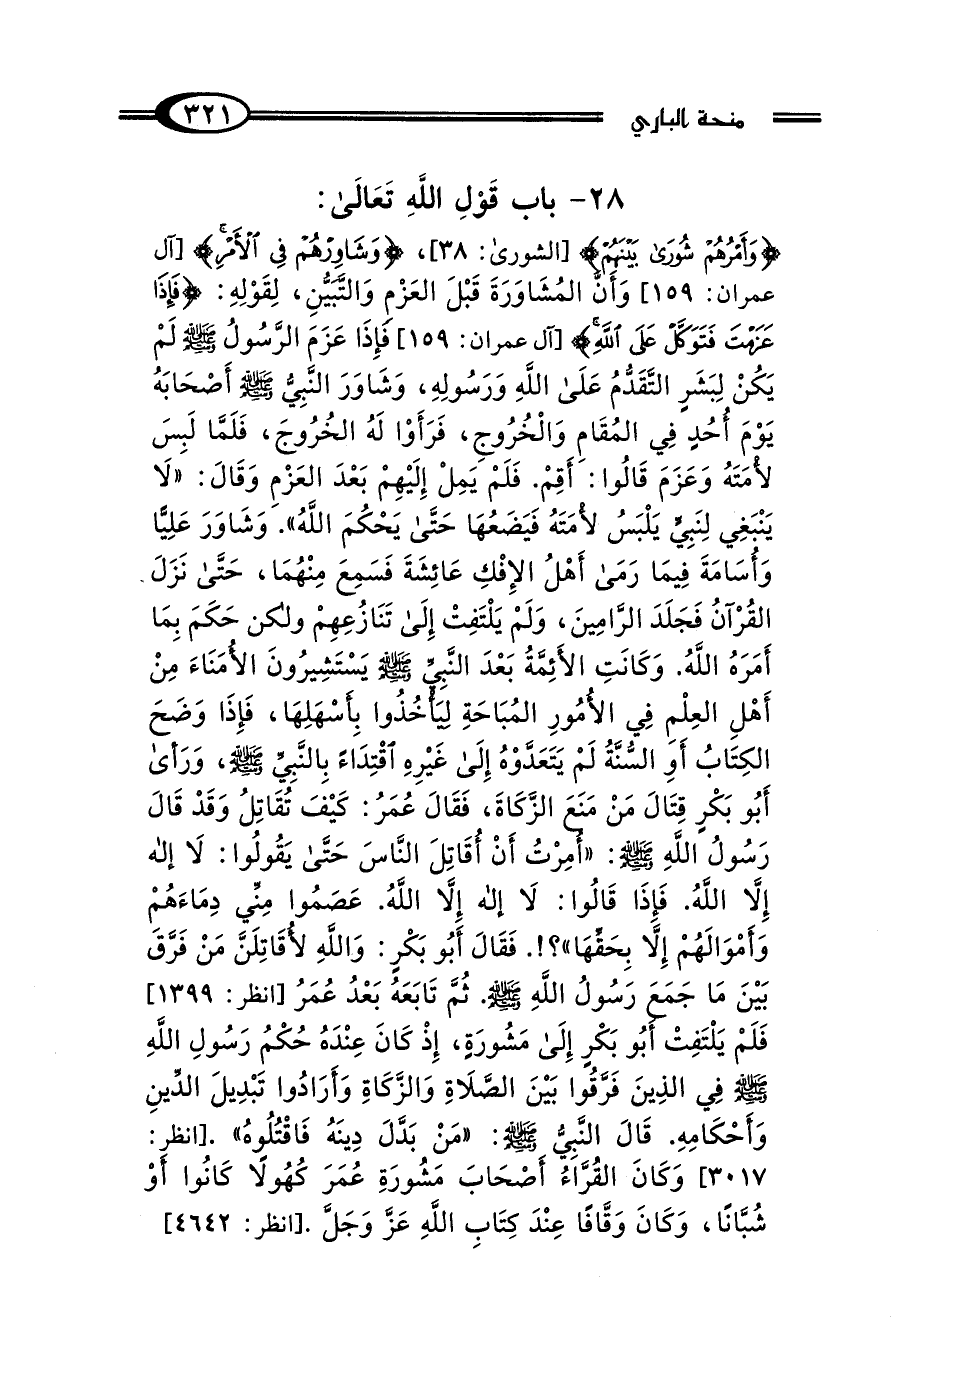 منحة الباري ٣٢١
٢٨- باب قَوْلِ اللَّهِ تَعَالَىٰ:
﴿وَأَمْرُهُمْ شُورَىٰ بَيْنَهُمْ﴾ [الشورىٰ: ٣٨]، ﴿وَشَاوِرْهُمْ فِي ٱلْأَمْرِ﴾ [آل
عمران: ١٥٩] وَأَنَّ المُشَاوَرَةَ قَبْلَ العَزْمِ وَالتَّبَيُّنِ، لِقَوْلِهِ: ﴿فَإِذَا
عَزَمْتَ فَتَوَكَّلْ عَلَى ٱللَّهِ﴾ [آل عمران: ١٥٩] فَإِذَا عَزَمَ الرَّسُولُ ﷺ لَمْ
يَكُنْ لِبَشَرٍ التَّقَدُّمُ عَلَىٰ اللَّهِ وَرَسُولِهِ، وَشَاوَرَ النَّبِيُّ ﷺ أَصْحَابَهُ
يَوْمَ أُحُدٍ فِي المُقَامِ وَالْخُرُوجِ، فَرَأَوْا لَهُ الخُرُوجَ، فَلَمَّا لَبِسَ
لأْمَتَهُ وَعَزَمَ قَالُوا: أَقِمْ. فَلَمْ يَمِلْ إِلَيْهِمْ بَعْدَ العَزْمِ وَقَالَ: «لَا
يَنْبَغِي لِنَبِيٍّ يَلْبَسُ لأْمَتَهُ فَيَضَعُهَا حَتَّىٰ يَحْكُمَ اللَّهُ». وَشَاوَرَ عَلِيًّا
وَأُسَامَةَ فِيمَا رَمَىٰ أَهْلُ الإِفْكِ عَائِشَةَ فَسَمِعَ مِنْهُمَا، حَتَّىٰ نَزَلَ
القُرْآنُ فَجَلَدَ الرَّامِينَ، وَلَمْ يَلْتَفِتْ إِلَىٰ تَنَازُعِهِمْ ولكن حَكَمَ بِمَا
أَمَرَهُ اللَّهُ. وَكَانَتِ الأَئِمَّةُ بَعْدَ النَّبِيِّ ﷺ يَسْتَشِيرُونَ الأُمَنَاءَ مِنْ
أَهْلِ العِلْمِ فِي الأُمُورِ المُبَاحَةِ لِيَأْخُذُوا بِأَسْهَلِهَا، فَإِذَا وَضَحَ
الكِتَابُ أَوِ السُّنَّةُ لَمْ يَتَعَدَّوْهُ إِلَىٰ غَيْرِهِ ٱقْتِدَاءً بِالنَّبِيِّ ﷺ، وَرَأىٰ
أَبُو بَكْرٍ قِتَالَ مَنْ مَنَعَ الزَّكَاةَ، فَقَالَ عُمَرُ: كَيْفَ تُقَاتِلُ وَقَدْ قَالَ
رَسُولُ اللَّهِ ﷺ: «أُمِرْتُ أَنْ أُقَاتِلَ النَّاسَ حَتَّىٰ يَقُولُوا: لَا إله
إِلَّا اللَّهُ. فَإِذَا قَالُوا: لَا إله إِلَّا اللَّهُ. عَصَمُوا مِنِّي دِمَاءَهُمْ
وَأَمْوَالَهُمْ إِلَّا بِحَقِّهَا»؟!. فَقَالَ أَبُو بَكْرٍ: وَاللَّهِ لأُقَاتِلَنَّ مَنْ فَرَّقَ
بَيْنَ مَا جَمَعَ رَسُولُ اللَّهِ ﷺ. ثُمَّ تَابَعَهُ بَعْدُ عُمَرُ [انظر: ١٣٩٩]
فَلَمْ يَلْتَفِتْ أَبُو بَكْرٍ إِلَىٰ مَشُورَةٍ، إِذْ كَانَ عِنْدَهُ حُكْمُ رَسُولِ اللَّهِ
ﷺ فِي الذِينَ فَرَّقُوا بَيْنَ الصَّلَاةِ وَالزَّكَاةِ وَأَرَادُوا تَبْدِيلَ الدِّينِ
وَأَحْكَامِهِ. قَالَ النَّبِيُّ ﷺ: «مَنْ بَدَّلَ دِينَهُ فَاقْتُلُوهُ» .[انظر:
٣٠١٧] وَكَانَ القُرَّاءُ أَصْحَابَ مَشُورَةِ عُمَرَ كُهُولًا كَانُوا أَوْ
شُبَّانًا، وَكَانَ وَقَّافًا عِنْدَ كِتَابِ اللَّهِ عَزَّ وَجَلَّ .[انظر: ٤٦٤٢]